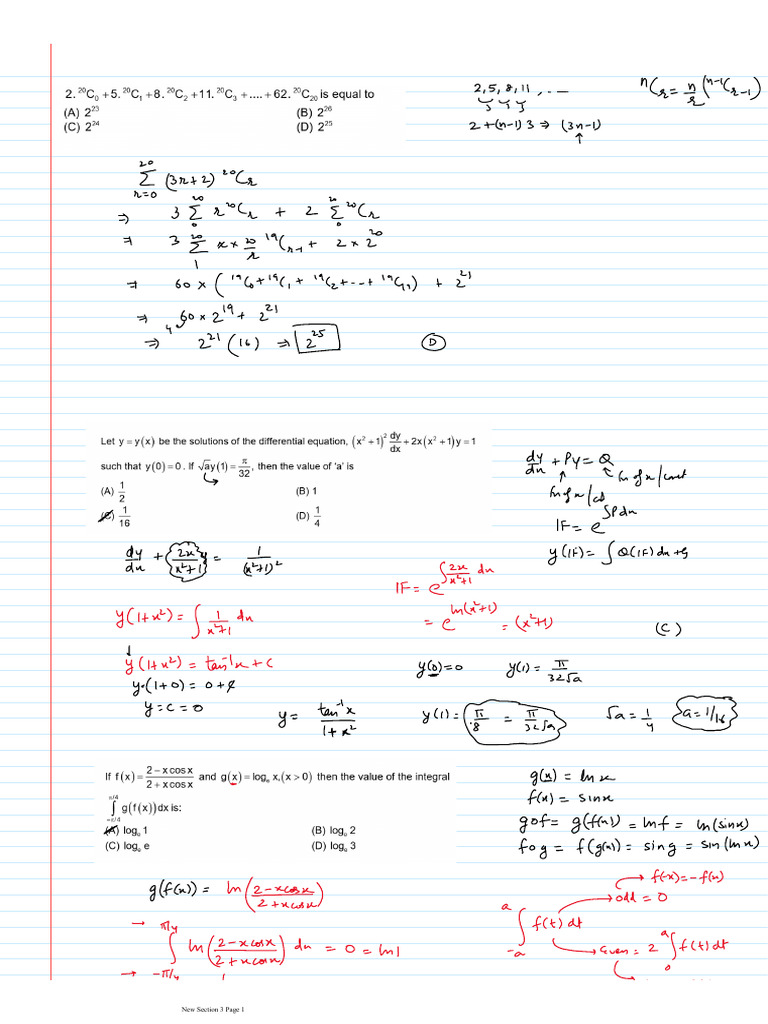 2. ²⁰C₀ + 5. ²⁰C₁ + 8. ²⁰C₂ + 11. ²⁰C₃ + .... + 62. ²⁰C₂₀ is equal to
(A) 2²³ (B) 2²⁶
(C) 2²⁴ (D) 2²⁵
2, 5, 8, 11, ...
3 3 3
2 + (n-1) 3 ⇒ (3n-1)
ⁿCᵣ = n/r (ⁿ⁻¹Cᵣ₋₁)
20 Σ r=0 (3r+2) ²⁰Cᵣ
⇒ 3 20 Σ 0 r ²⁰Cᵣ + 2 20 Σ 0 ²⁰Cᵣ
⇒ 3 20 Σ 1 r × 20/r ¹⁹Cᵣ₋₁ + 2 × 2²⁰
⇒ 60 × (¹⁹C₀ + ¹⁹C₁ + ¹⁹C₂ + --- + ¹⁹C₁₉) + 2²¹
⇒ 60 × 2¹⁹ + 2²¹
4
⇒ 2²¹ (16) ⇒ 2²⁵ (D)
Let y = y(x) be the solutions of the differential equation, (x² + 1)² dy/dx + 2x(x² + 1)y = 1
such that y(0) = 0. If √a y(1) = π/32, then the value of 'a' is
(A) 1/2 (B) 1
(C) 1/16 (D) 1/4
dy/dx + Py = Q
fn of x/const
IF = e^∫Pdx
y(IF) = ∫Q(IF)dx + C
dy/dx + 2x/(x²+1) y = 1/(x²+1)²
IF = e^∫2x/(x²+1) dx
= e^ln(x²+1) = (x²+1)
(C)
y(1+x²) = ∫ 1/(x²+1) dx
y(1+x²) = tan⁻¹x + c
y·(1+0) = 0 + c
y = c = 0
y = tan⁻¹x/(1+x²)
y(0) = 0 y(1) = π/32√a
y(1) = π/8 = π/32√a √a = 1/4 a = 1/16
If f(x) = (2 − x cos x)/(2 + x cos x) and g(x) = logₑ x, (x > 0) then the value of the integral
∫_{−π/4}^{π/4} g(f(x))dx is:
(A) logₑ 1 (B) logₑ 2
(C) logₑ e (D) logₑ 3
g(x) = ln x
f(x) = sin x
gof = g(f(x)) = ln f = ln(sin x)
fog = f(g(x)) = sin g = sin(ln x)
g(f(x)) = ln (2 − x cos x)/(2 + x cos x)
→ ∫_{−π/4}^{π/4} ln((2 − x cos x)/(2 + x cos x)) dx = 0 = ln 1
→
f(-x) = -f(x)
odd = 0
∫_{-a}^{a} f(t) dt
even = 2 ∫_0^a f(t) dt
New Section 3 Page 1